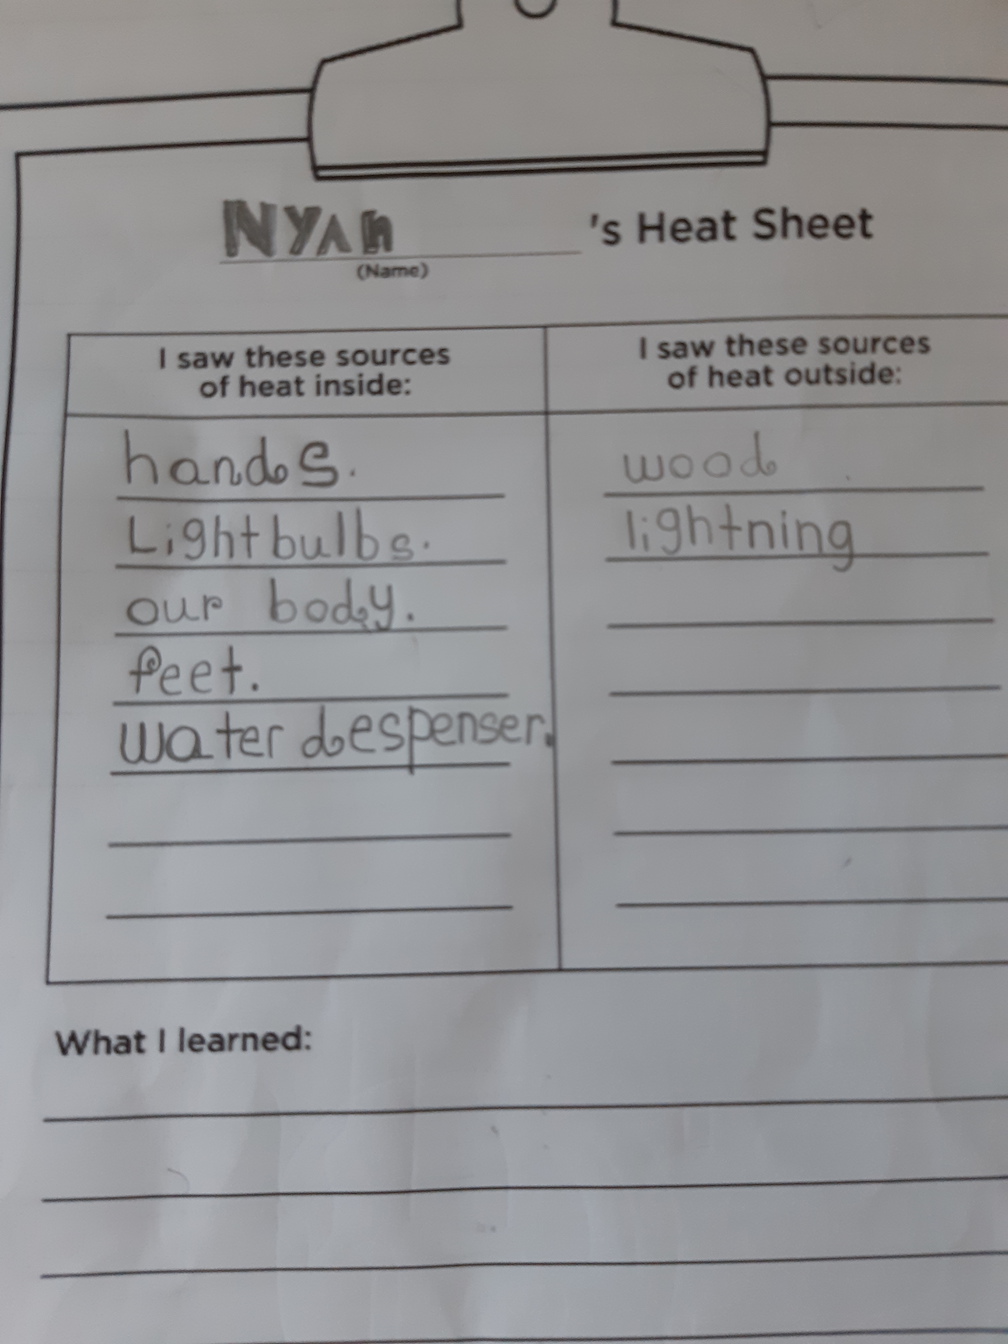 NYAh 's Heat Sheet
(Name)
I saw these sources
of heat inside:
hands.
Lightbulbs.
our body.
feet.
water despenser.
I saw these sources
of heat outside:
wood
lightning
What I learned: